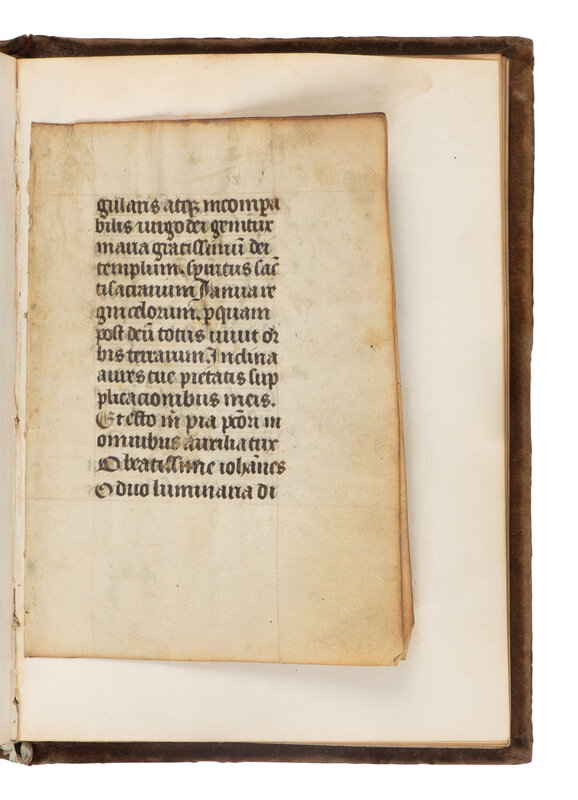 gularis atq; incompa
bilis uirgo dei genitrix
maria gratissimū dei
templum. spiritus sāc
ti sacrarium Ianua re
gni celorum. p quam
post deū totus uiuit or
bis terrarum. Inclina
aures tue pietatis sup
plicacionibus meis.
Et esto m̄ pia pctōri in
omnibus auxiliatrix
O beatissime iohānes
O duo luminaria di